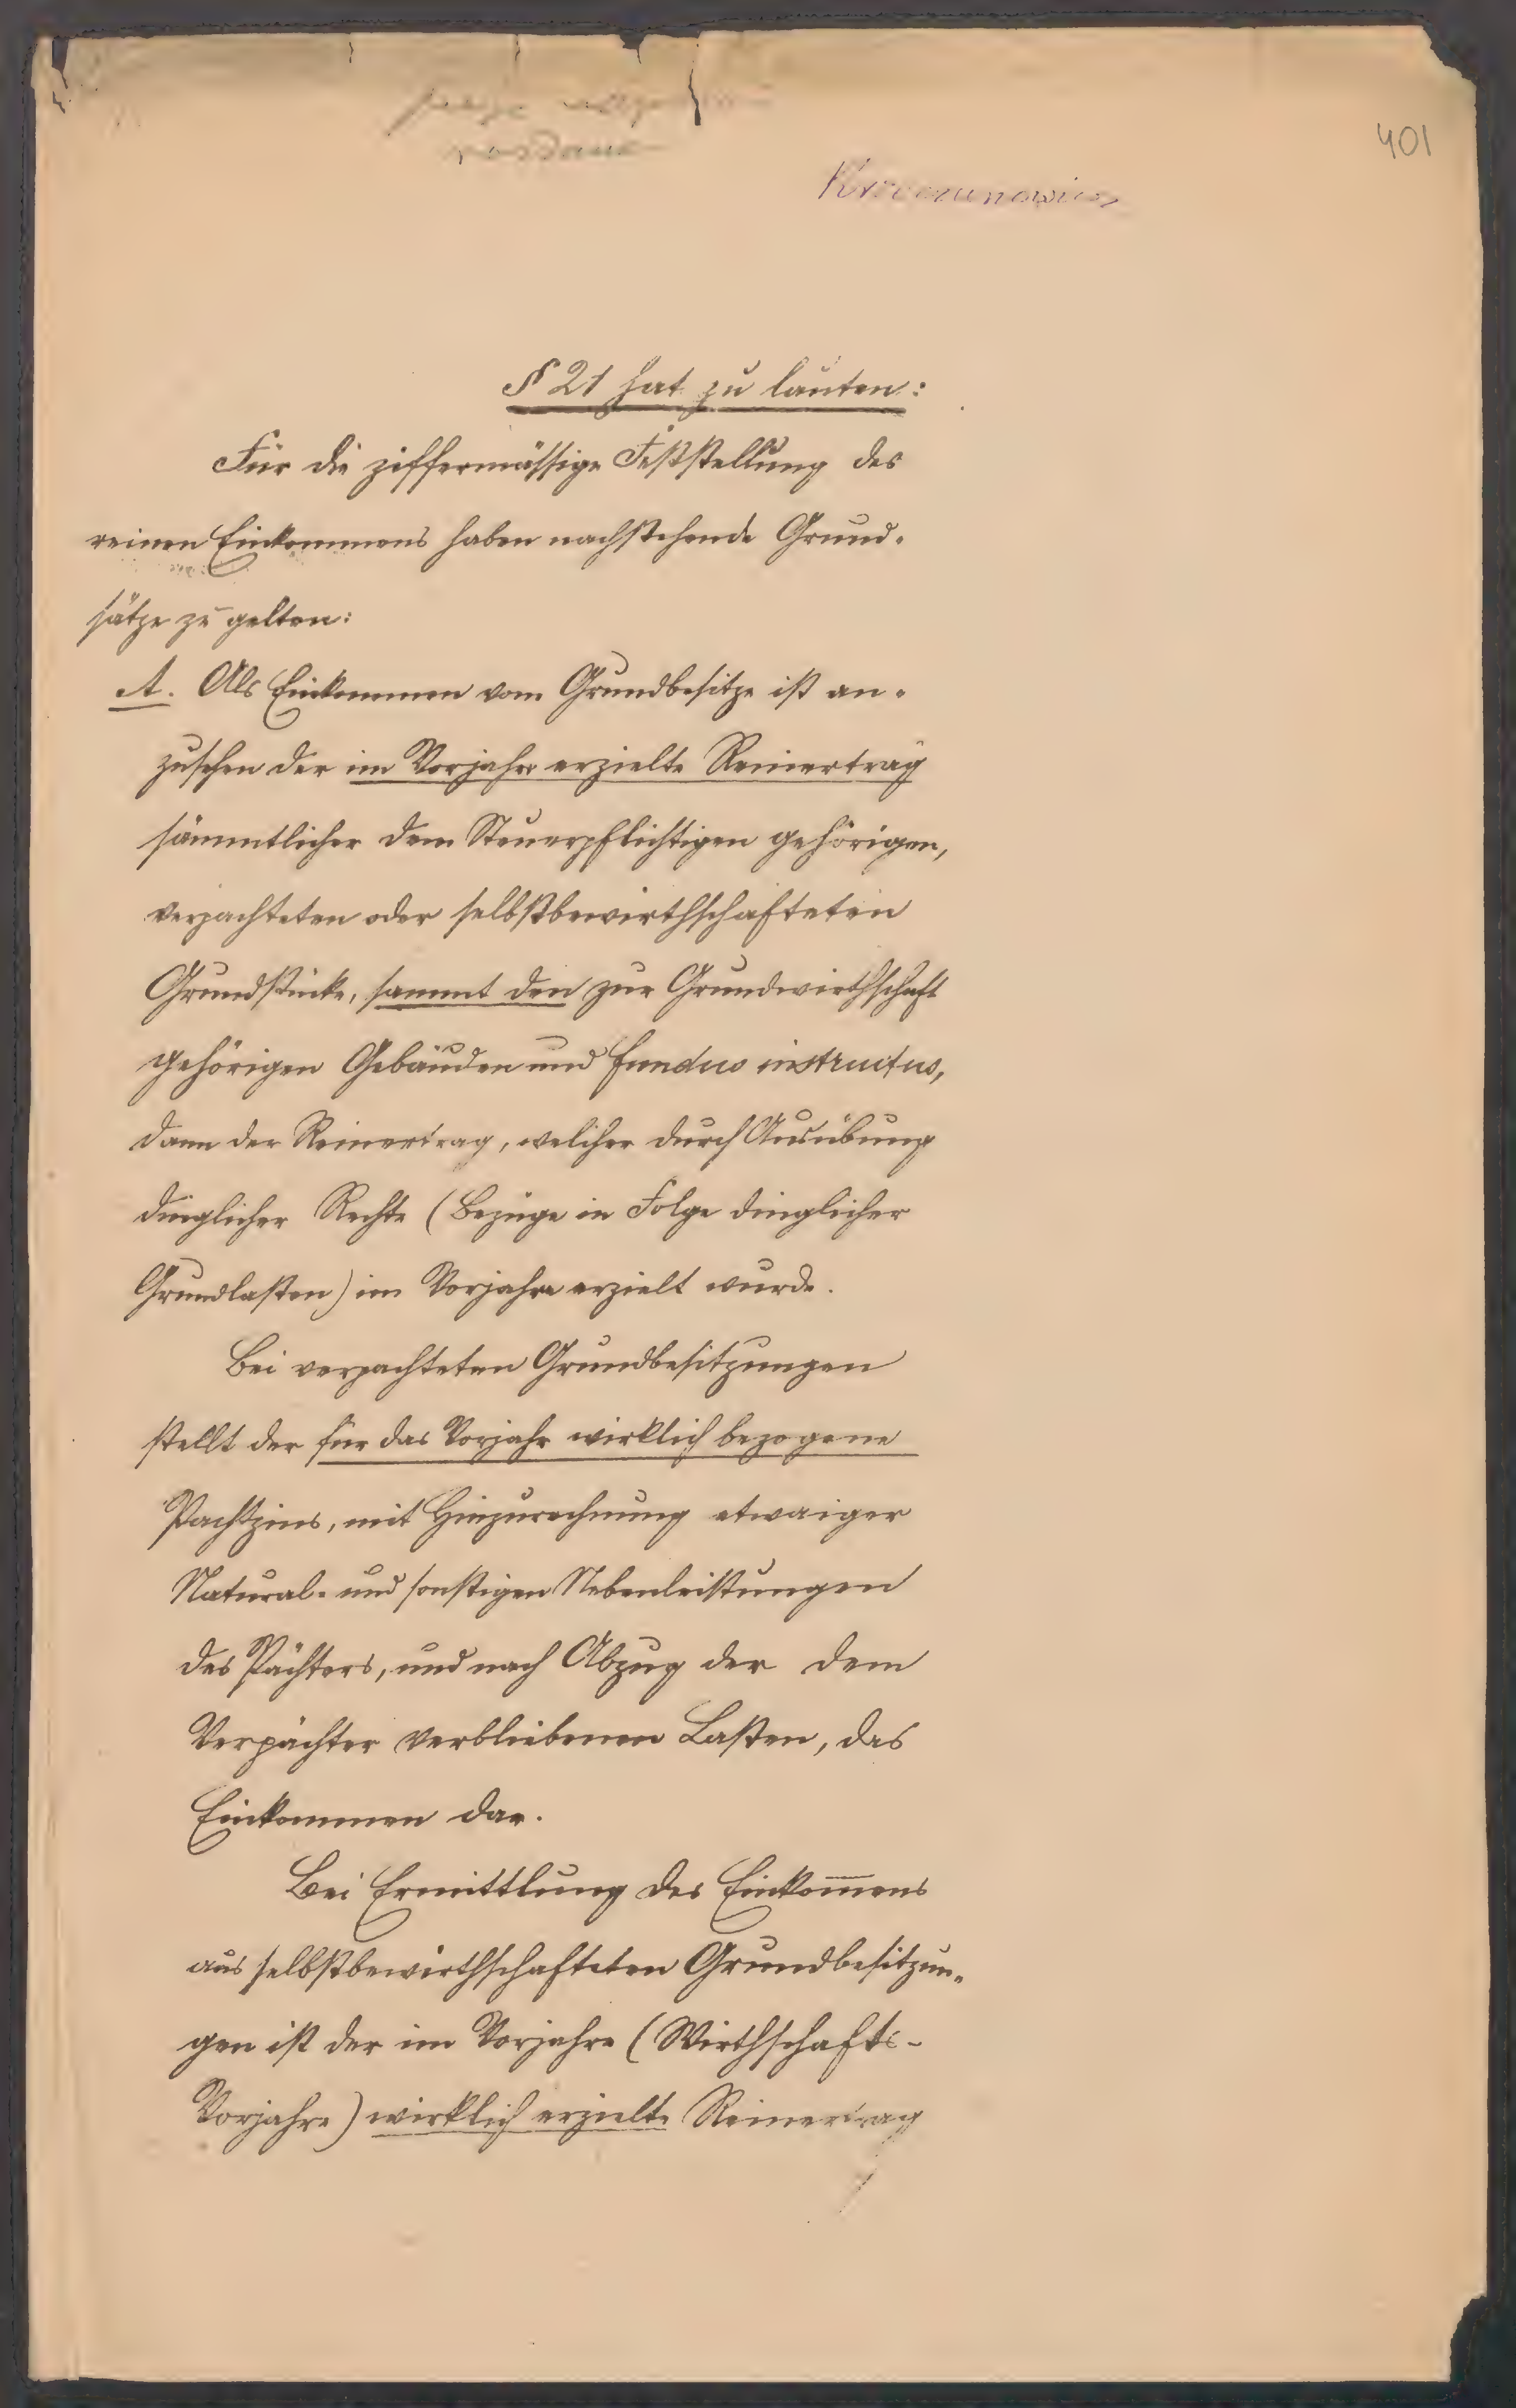 401
§ 21 hat zu lauten:
Für die ziffermässige Feststellung des
reinen Einkommens haben nachstehende Grund-
sätze zu gelten:
A. Als Einkommen vom Grundbesitze ist an-
zusehen der im Vorjahre erzielte Reinertrag
sämmtlicher dem Steuerpflichtigen gehörigen,
verpachteten oder selbstbewirthschafteten
Grundstücke, sammt den zur Grundwirthschaft
gehörigen Gebäuden und fundus instructus,
dann der Reinertrag, welcher durch Ausübung
dinglicher Rechte (Bezüge in Folge dinglicher
Grundlasten) im Vorjahre erzielt wurde.
Bei verpachteten Grundbesitzungen
stellt der für das Vorjahr wirklich bezogene
Pachtzins, mit Hinzurechnung etwaiger
Natural- und sonstigen Nebenleistungen
des Pächters, und nach Abzug der dem
Verpächter verbliebenen Lasten, das
Einkommen dar.
Bei Ermittlung des Einkom̅ens
aus selbstbewirthschafteten Grundbesitzun-
gen ist der im Vorjahre (Wirthschafts-
Vorjahre) wirklich erzielte Reinertrag